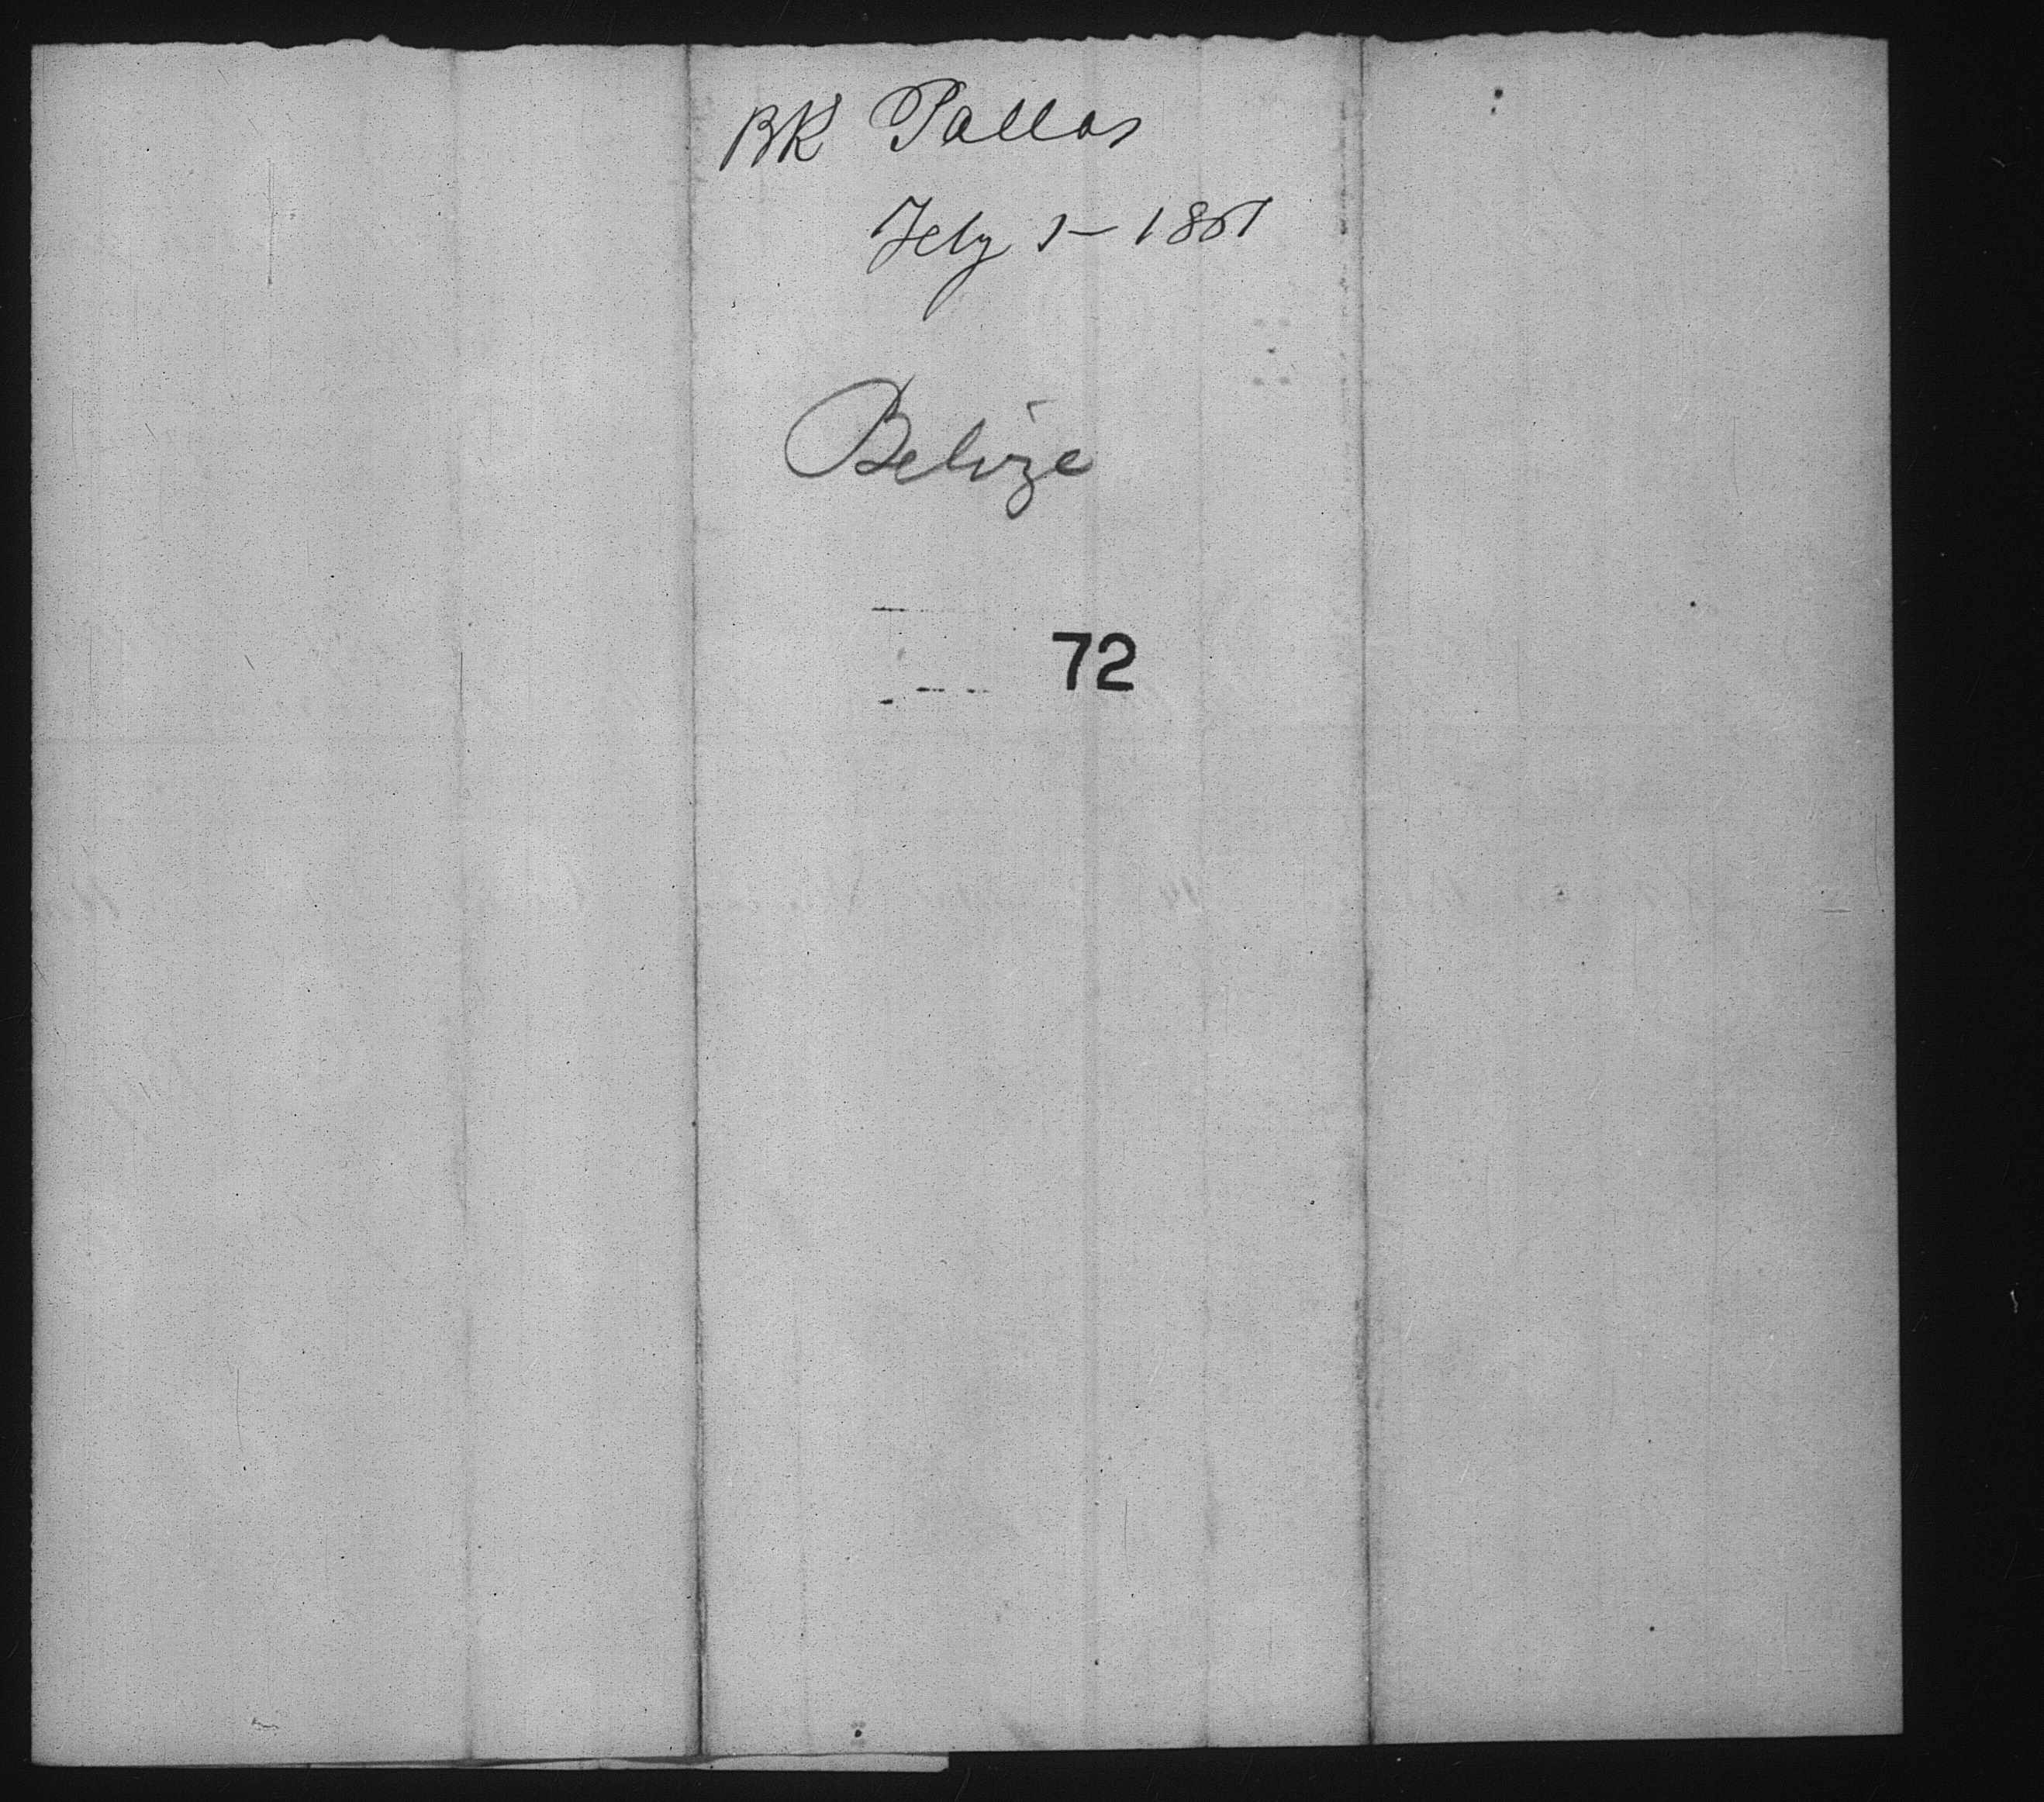 BK Pallas
Feby 1 - 1861
Belize
72